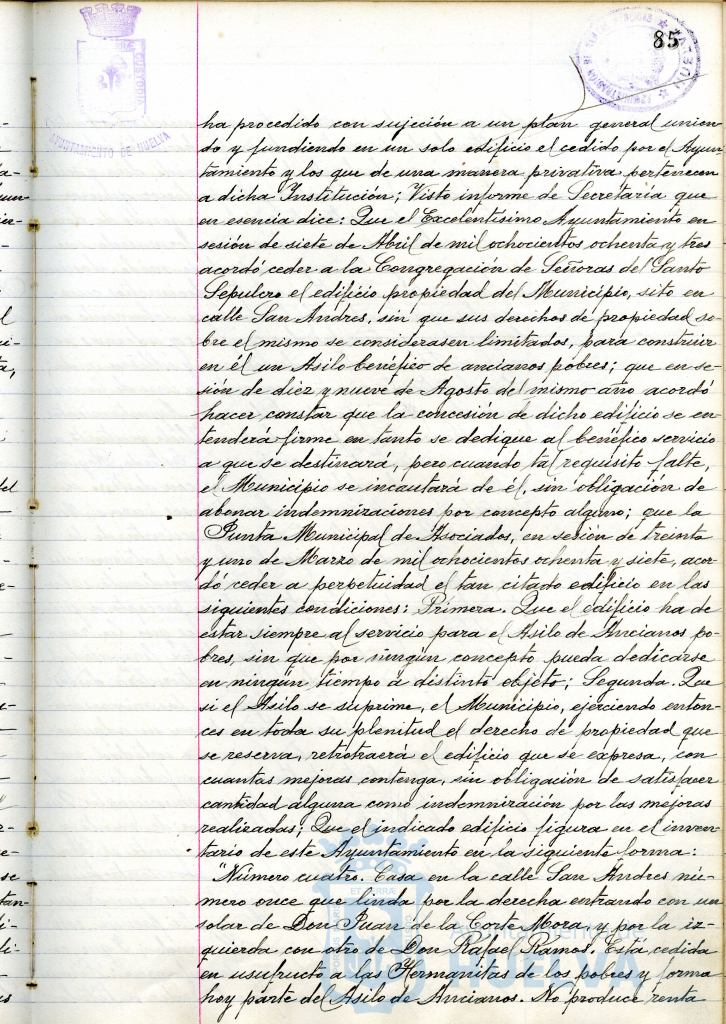 85
AYUNTAMIENTO DE HUELVA
ha procedido con sujeción a un plan general unien-
do y fundiendo en un solo edificio el cedido por el Ayun
tamiento y los que de una manera privativa pertenecen
a dicha Institución; Visto informe de Secretaría que
en esencia dice: Que el Excelentísimo Ayuntamiento en
sesión de siete de Abril de mil ochocientos ochenta y tres
acordó ceder a la Congregación de Señoras del Santo
Sepulcro el edificio propiedad del Municipio, sito en
calle San Andres, sin que sus derechos de propiedad so-
bre el mismo se considerasen limitados, para construir
en él un Asilo benéfico de ancianos pobres; que en se-
sión de diez y nueve de Agosto del mismo año acordó
hacer constar que la concesión de dicho edificio se en-
tenderá firme en tanto se dedique al benéfico servicio
a que se destinará, pero cuando tal requisito falte,
el Municipio se incautará de él, sin obligación de
abonar indemnizaciones por concepto alguno; que la
Junta Municipal de Asociados, en sesión de treinta
y uno de Marzo de mil ochocientos ochenta y siete, acor-
dó ceder a perpetuidad el tan citado edificio en las
siguientes condiciones: Primera. Que el edificio ha de
estar siempre al servicio para el Asilo de Ancianos po-
bres, sin que por ningún concepto pueda dedicarse
en ningún tiempo a distinto objeto; Segunda. Que
si el Asilo se suprime, el Municipio, ejerciendo enton-
ces en toda su plenitud el derecho de propiedad que
se reserva, retrotraerá el edificio que se expresa, con
cuantas mejoras contenga, sin obligación de satisfacer
cantidad alguna como indemnización por las mejoras
realizadas; Que el indicado edificio figura en el inven-
tario de este Ayuntamiento en la siguiente forma:
"Número cuatro. Casa en la calle San Andres nú-
mero once que linda por la derecha entrando con un
solar de Don Juan de la Corte Mora y por la iz-
quierda con otro de Don Rafael Ramos. Está cedida
en usufructo a las Hermanitas de los pobres y forma
hoy parte del Asilo de Ancianos. No produce renta